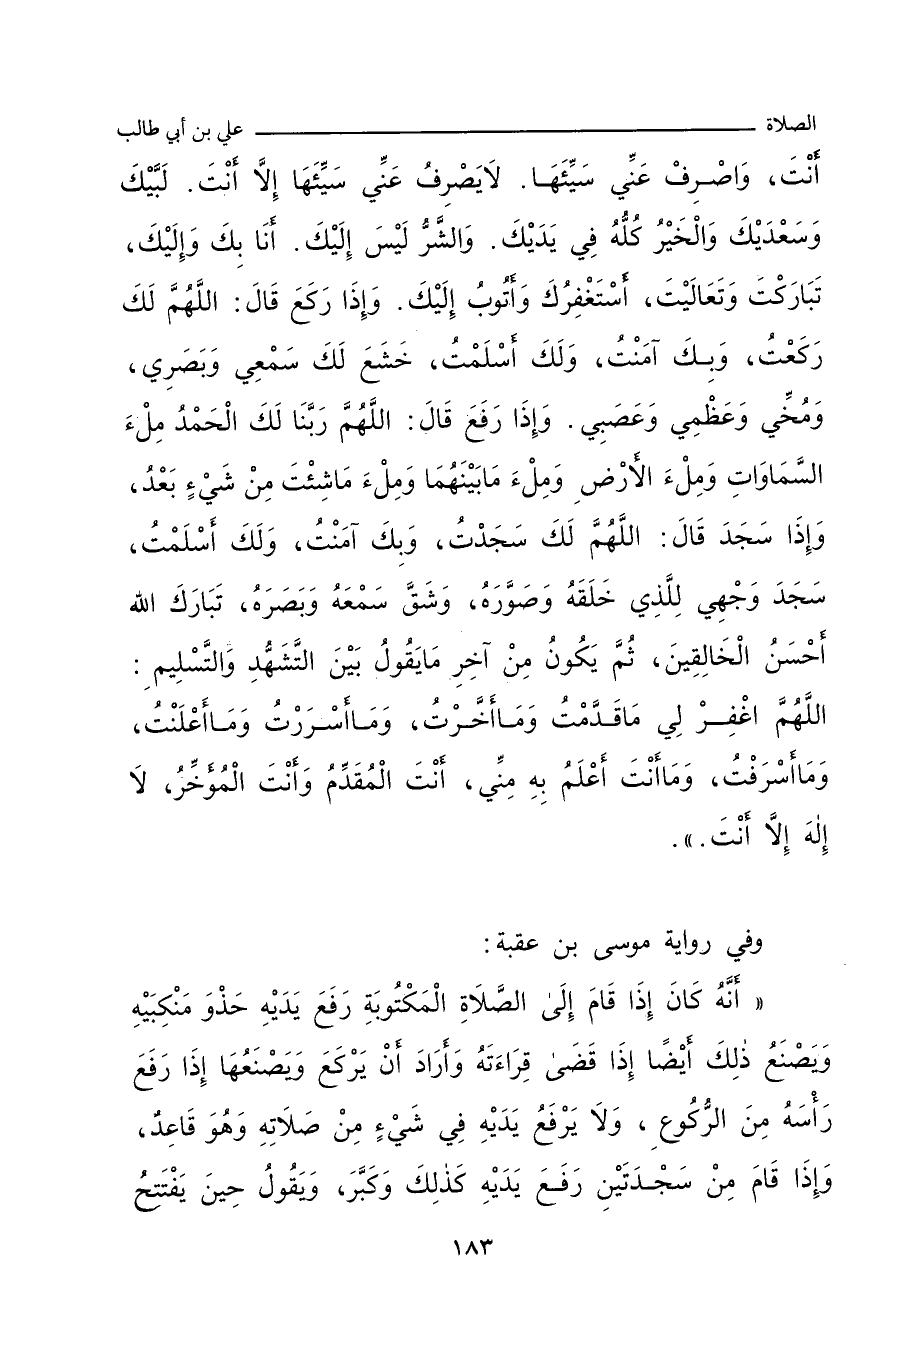 الصلاة علي بن أبي طالب
أَنْتَ، وَاصْرِفْ عَنِّي سَيِّئَهَا. لَايَصْرِفُ عَنِّي سَيِّئَهَا إِلَّا أَنْتَ. لَبَّيْكَ
وَسَعْدَيْكَ وَالْخَيْرُ كُلُّهُ فِي يَدَيْكَ. وَالشَّرُّ لَيْسَ إِلَيْكَ. أَنَا بِكَ وَإِلَيْكَ،
تَبَارَكْتَ وَتَعَالَيْتَ، أَسْتَغْفِرُكَ وَأَتُوبُ إِلَيْكَ. وَإِذَا رَكَعَ قَالَ: اللَّهُمَّ لَكَ
رَكَعْتُ، وَبِكَ آمَنْتُ، وَلَكَ أَسْلَمْتُ، خَشَعَ لَكَ سَمْعِي وَبَصَرِي،
وَمُخِّي وَعَظْمِي وَعَصَبِي. وَإِذَا رَفَعَ قَالَ: اللَّهُمَّ رَبَّنَا لَكَ الْحَمْدُ مِلْءَ
السَّمَاوَاتِ وَمِلْءَ الْأَرْضِ وَمِلْءَ مَابَيْنَهُمَا وَمِلْءَ مَاشِئْتَ مِنْ شَيْءٍ بَعْدُ،
وَإِذَا سَجَدَ قَالَ: اللَّهُمَّ لَكَ سَجَدْتُ، وَبِكَ آمَنْتُ، وَلَكَ أَسْلَمْتُ،
سَجَدَ وَجْهِي لِلَّذِي خَلَقَهُ وَصَوَّرَهُ، وَشَقَّ سَمْعَهُ وَبَصَرَهُ، تَبَارَكَ الله
أَحْسَنُ الْخَالِقِينَ، ثُمَّ يَكُونُ مِنْ آخِرِ مَايَقُولُ بَيْنَ التَّشَهُّدِ وَالتَّسْلِيمِ:
اللَّهُمَّ اغْفِرْ لِي مَاقَدَّمْتُ وَمَاأَخَّرْتُ، وَمَاأَسْرَرْتُ وَمَاأَعْلَنْتُ،
وَمَاأَسْرَفْتُ، وَمَاأَنْتَ أَعْلَمُ بِهِ مِنِّي، أَنْتَ الْمُقَدِّمُ وَأَنْتَ الْمُؤَخِّرُ، لَا
إِلٰهَ إِلَّا أَنْتَ.».
وفي رواية موسى بن عقبة:
« أَنَّهُ كَانَ إِذَا قَامَ إِلَىٰ الصَّلَاةِ الْمَكْتُوبَةِ رَفَعَ يَدَيْهِ حَذْوَ مَنْكِبَيْهِ
وَيَصْنَعُ ذٰلِكَ أَيْضًا إِذَا قَضَىٰ قِرَاءَتَهُ وَأَرَادَ أَنْ يَرْكَعَ وَيَصْنَعُهَا إِذَا رَفَعَ
رَأْسَهُ مِنَ الرُّكُوعِ، وَلَا يَرْفَعُ يَدَيْهِ فِي شَيْءٍ مِنْ صَلَاتِهِ وَهُوَ قَاعِدٌ،
وَإِذَا قَامَ مِنْ سَجْدَتَيْنِ رَفَعَ يَدَيْهِ كَذٰلِكَ وَكَبَّرَ، وَيَقُولُ حِينَ يَفْتَتِحُ
١٨٣